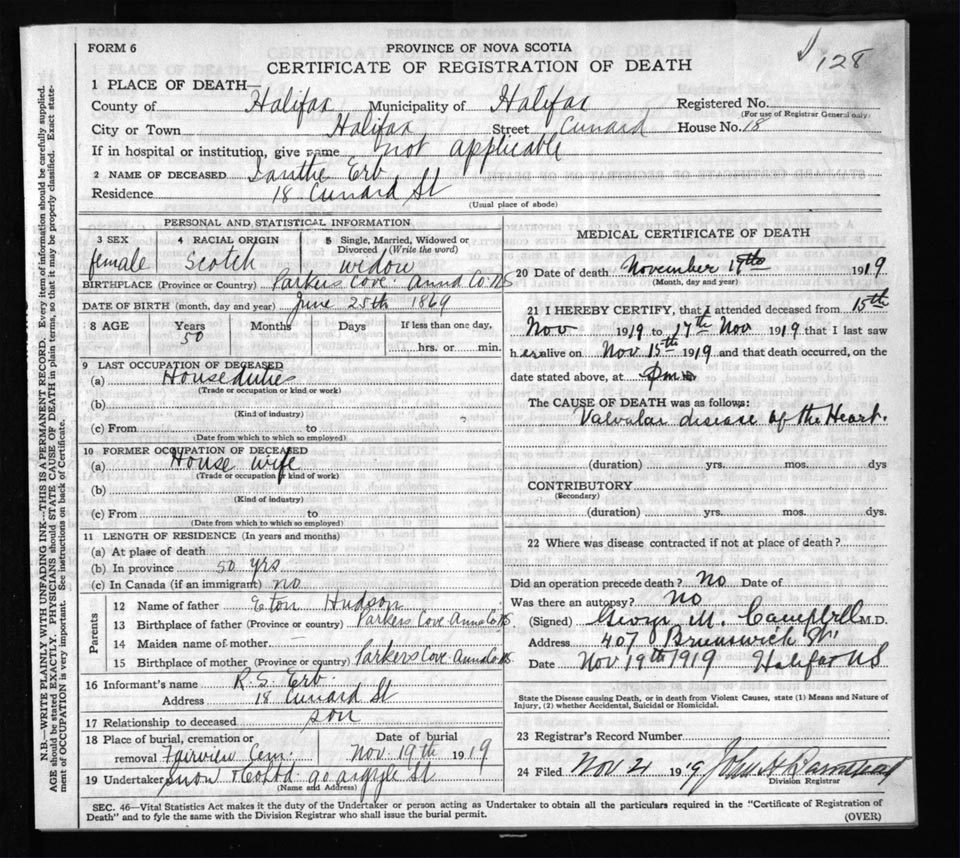 FORM 6
PROVINCE OF NOVA SCOTIA
128
CERTIFICATE OF REGISTRATION OF DEATH
1 PLACE OF DEATH—
County of Halifax Municipality of Halifax Registered No.
(For use of Registrar General only)
City or Town Halifax Street Cunard House No. 18
If in hospital or institution, give name not applicable
2 NAME OF DECEASED Ianthe Erb
Residence 18 Cunard St
(Usual place of abode)
PERSONAL AND STATISTICAL INFORMATION
3 SEX 4 RACIAL ORIGIN 5 Single, Married, Widowed or Divorced (Write the word)
female Scotch widow
BIRTHPLACE (Province or Country) Parkers Cove. Anna Co. NS
DATE OF BIRTH (month, day and year) June 25th 1869
8 AGE Years Months Days If less than one day,
50 hrs. or min.
9 LAST OCCUPATION OF DECEASED
(a) House duties
(Trade or occupation or kind or work)
(b)
(Kind of industry)
(c) From to
(Date from which to which so employed)
10 FORMER OCCUPATION OF DECEASED
(a) House wife
(Trade or occupation or kind of work)
(b)
(Kind of industry)
(c) From to
(Date from which to which so employed)
11 LENGTH OF RESIDENCE (In years and months)
(a) At place of death
(b) In province 50 yrs
(c) In Canada (if an immigrant) no
Parents
12 Name of father Eton Hudson
13 Birthplace of father (Province or country) Parkers Cove Anna Co. NS
14 Maiden name of mother —
15 Birthplace of mother (Province or country) Parkers Cove Anna Co. NS
16 Informant's name R. S. Erb
Address 18 Cunard St
17 Relationship to deceased son
18 Place of burial, cremation or Date of burial
removal Fairview Cem. Nov. 19th 1919
19 Undertaker Snow & Co Ltd. 90 Argyle St
(Name and Address)
MEDICAL CERTIFICATE OF DEATH
20 Date of death November 17th 1919
(Month, day and year)
21 I HEREBY CERTIFY, that I attended deceased from 15th
Nov 1919 to 17th Nov 1919 that I last saw
her alive on Nov 15th 1919 and that death occurred, on the
date stated above, at m.
The CAUSE OF DEATH was as follows:
Valvular disease of the Heart.
(duration) yrs. mos. dys
CONTRIBUTORY
(Secondary)
(duration) yrs. mos. dys.
22 Where was disease contracted if not at place of death?
Did an operation precede death? No Date of
Was there an autopsy? No
(Signed) George M. Campbell M.D.
Address 407 Brunswick St.
Date Nov 19th 1919 Halifax NS
State the Disease causing Death, or in death from Violent Causes, state (1) Means and Nature of
Injury, (2) whether Accidental, Suicidal or Homicidal.
23 Registrar's Record Number
24 Filed Nov 21 1919 John A Barnstead
Division Registrar
SEC. 46—Vital Statistics Act makes it the duty of the Undertaker or person acting as Undertaker to obtain all the particulars required in the "Certificate of Registration of
Death" and to fyle the same with the Division Registrar who shall issue the burial permit. (OVER)
N.B.—WRITE PLAINLY WITH UNFADING INK—THIS IS A PERMANENT RECORD. Every item of information should be carefully supplied.
AGE should be stated EXACTLY. PHYSICIANS should STATE CAUSE OF DEATH in plain terms, so that it may be properly classified. Exact state-
ment of OCCUPATION is very important. See instructions on back of Certificate.